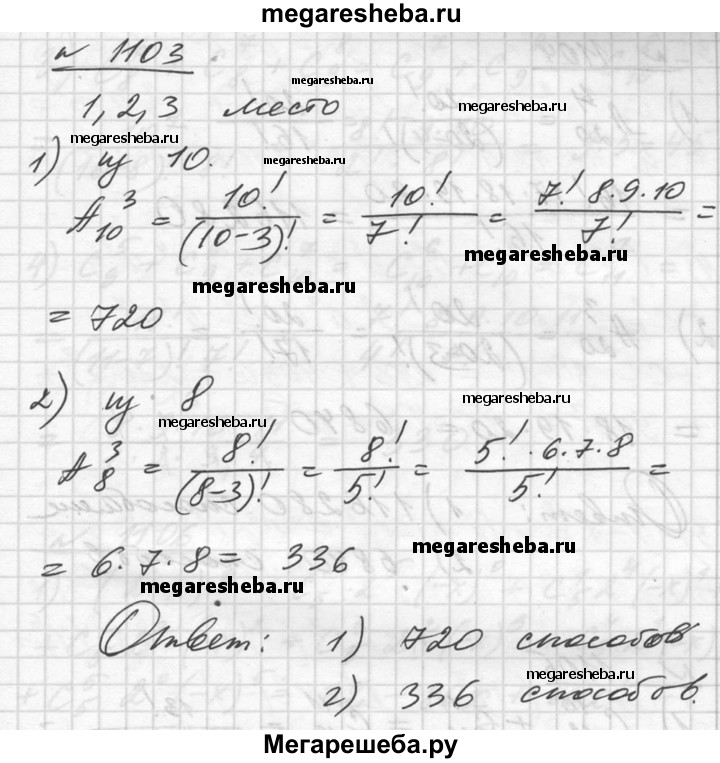 megaresheba.ru
№ 1103
megaresheba.ru
1, 2, 3 место megaresheba.ru
megaresheba.ru
1) из 10. megaresheba.ru
A₁₀³ = 10!/(10-3)! = 10!/7! = 7! 8·9·10/7! =
megaresheba.ru
megaresheba.ru
= 720
2) из 8
megaresheba.ru megaresheba.ru
A₈³ = 8!/(8-3)! = 8!/5! = 5! · 6·7·8/5! =
megaresheba.ru
= 6·7·8 = 336
megaresheba.ru
Ответ: 1) 720 способов
megaresheba.ru
2) 336 способов.
Мегарешеба.ру